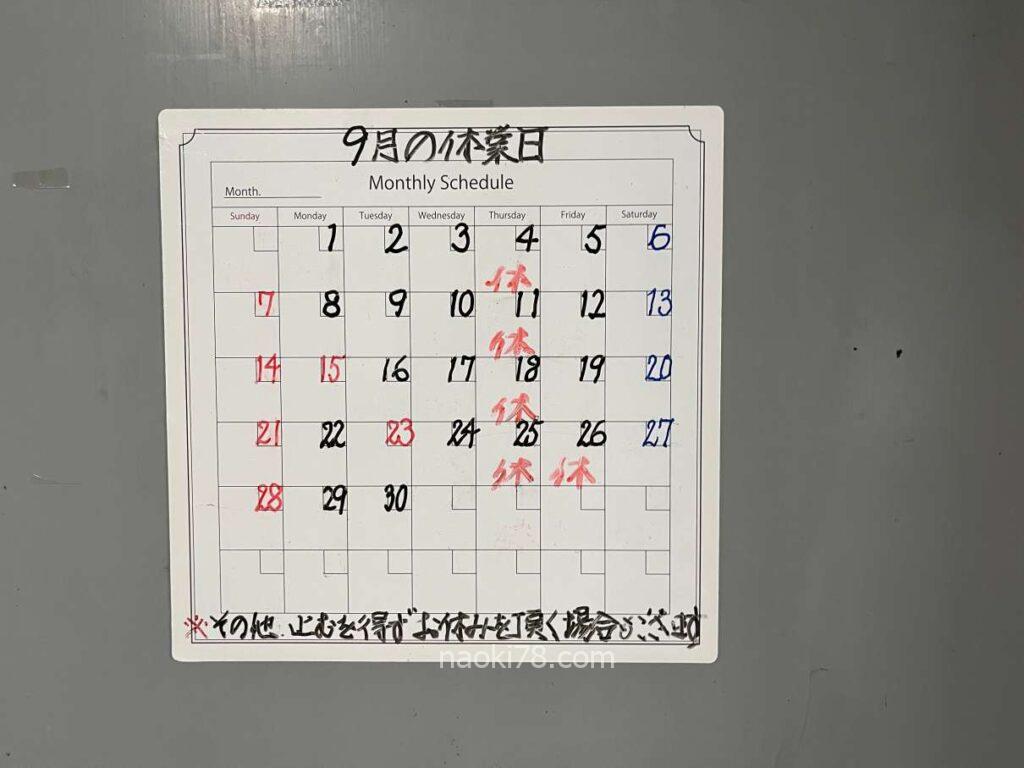 9月の休業日
Monthly Schedule
Month.
Sunday Monday Tuesday Wednesday Thursday Friday Saturday
1 2 3 4 5 6
休
7 8 9 10 11 12 13
休
14 15 16 17 18 19 20
休
21 22 23 24 25 26 27
休 休
28 29 30
※その他、止むを得ずお休みを頂く場合もございます
naoki78.com